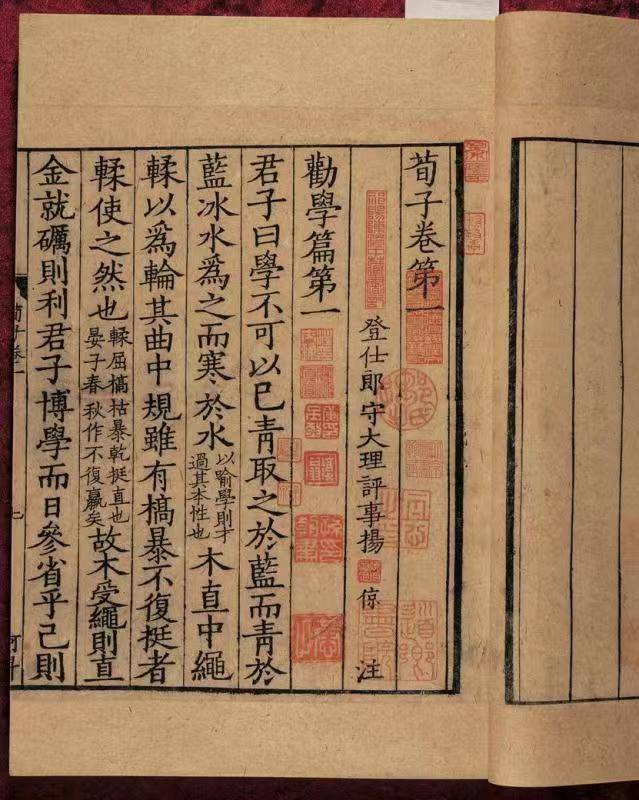 荀子卷第一
登仕郎守大理評事揚倞注
勸學篇第一
君子曰學不可以已青取之於藍而青於
藍冰水爲之而寒於水以喻學則才過其本性也木直中繩
輮以爲輪其曲中規雖有槁暴不復挺者
輮使之然也輮屈槁枯暴乾挺直也晏子春秋作不復羸矣故木受繩則直
金就礪則利君子博學而日參省乎己則